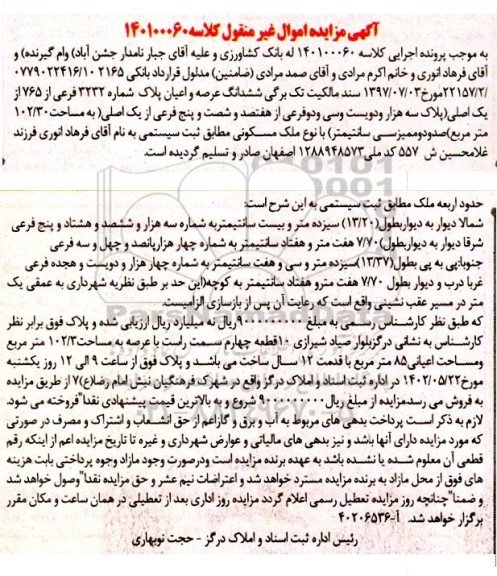 آگهی مزایده اموال غیر منقول کلاسه ۱۴۰۱۰۰۰۶۰
به موجب پرونده اجرایی کلاسه ۱۴۰۱۰۰۰۶۰ له بانک کشاورزی و علیه آقای جبار نامدار جشن آباد) وام گیرنده) و
آقای فرهاد انوری و خانم اکرم مرادی و آقای صمد مرادی (ضامنین) مدلول قرارداد بانکی ۲۱۶۵ ۰۷۷۹۰۲۲۴۱۶/۱۰
/۲۲۱۵۷/۲مورخ۱۳۹۷/۰۷/۰۳ سند مالکیت تک برگی ششدانگ عرصه و اعیان پلاک شماره ۳۲۳۲ فرعی از ۷۶۵ از
یک اصلی(پلاک سه هزار ودویست وسی ودوفرعی از هفتصد و شصت و پنج فرعی از یک اصلی( به مساحت۱۰۲/۳۰
متر مربع)صدودوممیزسی سانتیمتر) با نوع ملک مسکونی مطابق ثبت سیستمی به نام آقای فرهاد انوری فرزند
غلامحسین ش ۵۵۷ کد ملی۱۲۸۸۹۴۸۵۷۳ اصفهان صادر و تسلیم گردیده است.
حدود اربعه ملک مطابق ثبت سیستمی به این شرح است:
شمالا دیوار به دیواربطول(۱۳/۲۰) سیزده متر و بیست سانتیمتربه شماره سه هزار و ششصد و هشتاد و پنج فرعی
شرقا دیوار به دیواربطول)۷/۷۰ هفت متر و هفتاد سانتیمتر به شماره چهار هزارپانصد و چهل و سه فرعی
جنوبا:پی به پی بطول(۱۳/۳۷)سیزده متر و سی و هفت سانتیمتر به شماره چهار هزار و دویست و هجده فرعی
غربا درب و دیوار بطول ۷/۷۰ هفت مترو هفتاد سانتیمتر به کوچه(این حد بر طبق نظریه شهرداری به عمقی یک
متر در مسیر عقب نشینی واقع است که رعایت آن پس از بازسازی الزامیست.
که طبق نظر کارشناس رسمی به مبلغ ۹۰۰۰۰۰۰۰۰۰ریال نه میلیارد ریال ارزیابی شده و پلاک فوق برابر نظر
کارشناس به نشانی درگزبلوار صیاد شیرازی ۱۰قطعه چهارم سمت راست با عرصه به مساحت۱۰۲/۳ متر مربع
ومساحت اعیانی۸۵ متر مربع با قدمت ۱۲ سال ساخت می باشد و پلاک فوق از ساعت ۹ الی ۱۲ روز یکشنبه
مورخ۱۴۰۲/۰۵/۲۲ در اداره ثبت اسناد و املاک درگز واقع در شهرک فرهنگیان نبش امام رضا(ع)۷ از طریق مزایده
به فروش می رسد.مزایده از مبلغ ریال۹۰۰۰۰۰۰۰۰۰ شروع و به بالاترین قیمت پیشنهادی نقدا"فروخته می شود.
لازم به ذکر است پرداخت بدهی های مربوط به آب و برق و گازاعم از حق انشعاب و اشتراک و مصرف در صورتی
که مورد مزایده دارای آنها باشد و نیز بدهی های مالیاتی و عوارض شهرداری و غیره تا تاریخ مزایده اعم از اینکه رقم
قطعی آن معلوم شده یا نشده باشد به عهده برنده مزایده است ودرصورت وجود مازاد وجوه پرداختی بابت هزینه
های فوق از محل مازاد به برنده مزایده مسترد خواهد شد و اعتراضات نیم عشر و حق مزایده نقدا"وصول خواهد شد
و ضمنا"چنانچه روز مزایده تعطیل رسمی اعلام گردد مزایده روز اداری بعد از تعطیلی در همان ساعت و مکان مقرر
برگزار خواهد شد. آ-۴۰۲۰۶۵۳۶
رئیس اداره ثبت اسناد و املاک درگز - حجت نوبهاری
ParsNamadData